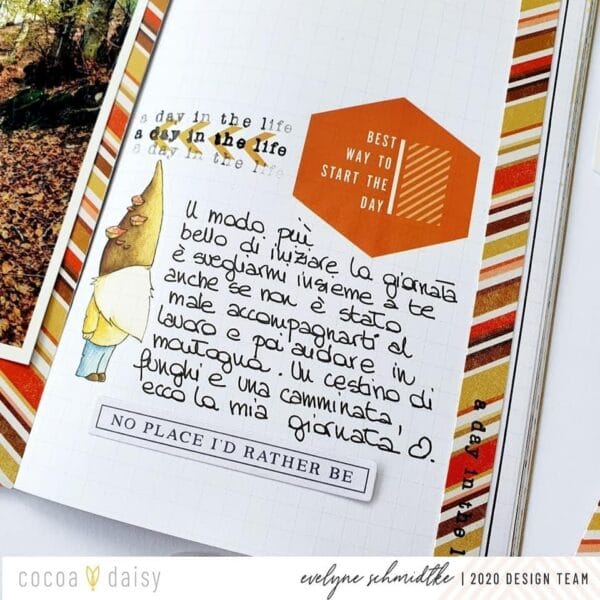 a day in the life
a day in the life
a day in the life
BEST
WAY TO
START THE
DAY
Il modo più
bello di iniziare la giornata
è svegliarmi insieme a te
anche se non è stato
male accompagnarti al
lavoro e poi andare in
montagna. Un cestino di
funghi e una camminata,
ecco la mia giornata
NO PLACE I'D RATHER BE
a day in the l
cocoa daisy
evelyne schmidtke | 2020 DESIGN TEAM